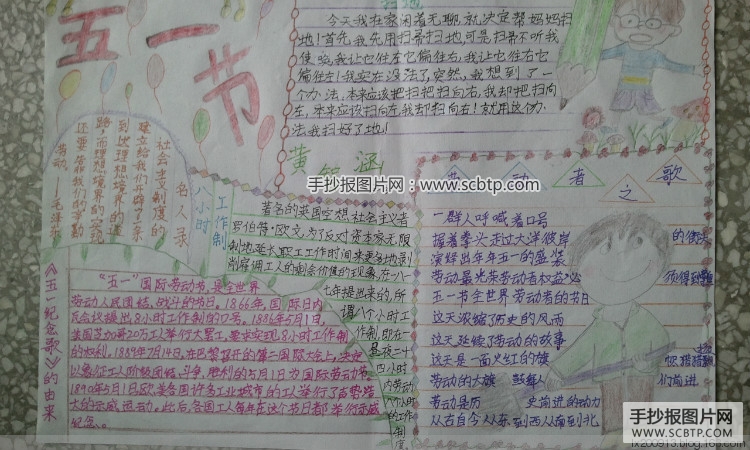 五一节
扫地
今天我在家闲着无聊,就决定帮妈妈扫
地!首先,我先用扫帚扫地,可是扫帚不听我
使唤,我让它往左它偏往右,我让它往右它
偏往左!我实在没法了,突然,我想到了一
个办法,本来应该把扫把扫向右,我却把扫向
左,本来应该扫向左,我却扫向右!就用这个办
法,我扫好了地!
社会主义制度的
建立给我们开辟了一条
到达理想境界的道
路,而理想境界的实现
还要靠我们的辛勤
劳动。 毛泽东
名人录
八小时
工作制
著名的英国空想社会主义者
罗伯特·欧文,为了反对资本家无限
制地延长职工工作时间来更多地剥
削雇佣工人的剩余价值的现象,在八一
七年提出来的,所
谓八个小时工
作制,即在一
昼夜二十
四小时
内劳动
八个小时
的工作
制度
手抄报图片网:www.scbtp.com
劳动者之歌
一群人呼喊着口号
握着拳头走过大洋彼岸的街头
演绎出年年五一的盛装
劳动最光荣劳动者权益必须得到
五一节全世界劳动者的节日
这天浓缩了历史的风雨
这天延续了劳动的故事
这天是一面火红的旗
劳动的大旗 鼓舞人们前进
劳动是历史前进的动力
从古自今从东到西从南到北
《五一纪念歌》的由来
“五一”国际劳动节,是全世界
劳动人民团结、战斗的节日。1866年,国际日内
瓦会议提出8小时工作制的口号。1886年5月1日,
美国芝加哥20万工人举行大罢工,要求实现8小时工作制
的权利。1889年7月14日,在巴黎召开的第二国际大会上,决定
以象征工人阶级团结、斗争、胜利的5月1日为国际劳动节。
1890年5月1日,欧美各国许多工业城市的工人举行了声势浩
大的示威运动。此后,各国工人每年在这个节日都举行示威
纪念。
手抄报图片网
WWW.SCBTP.COM